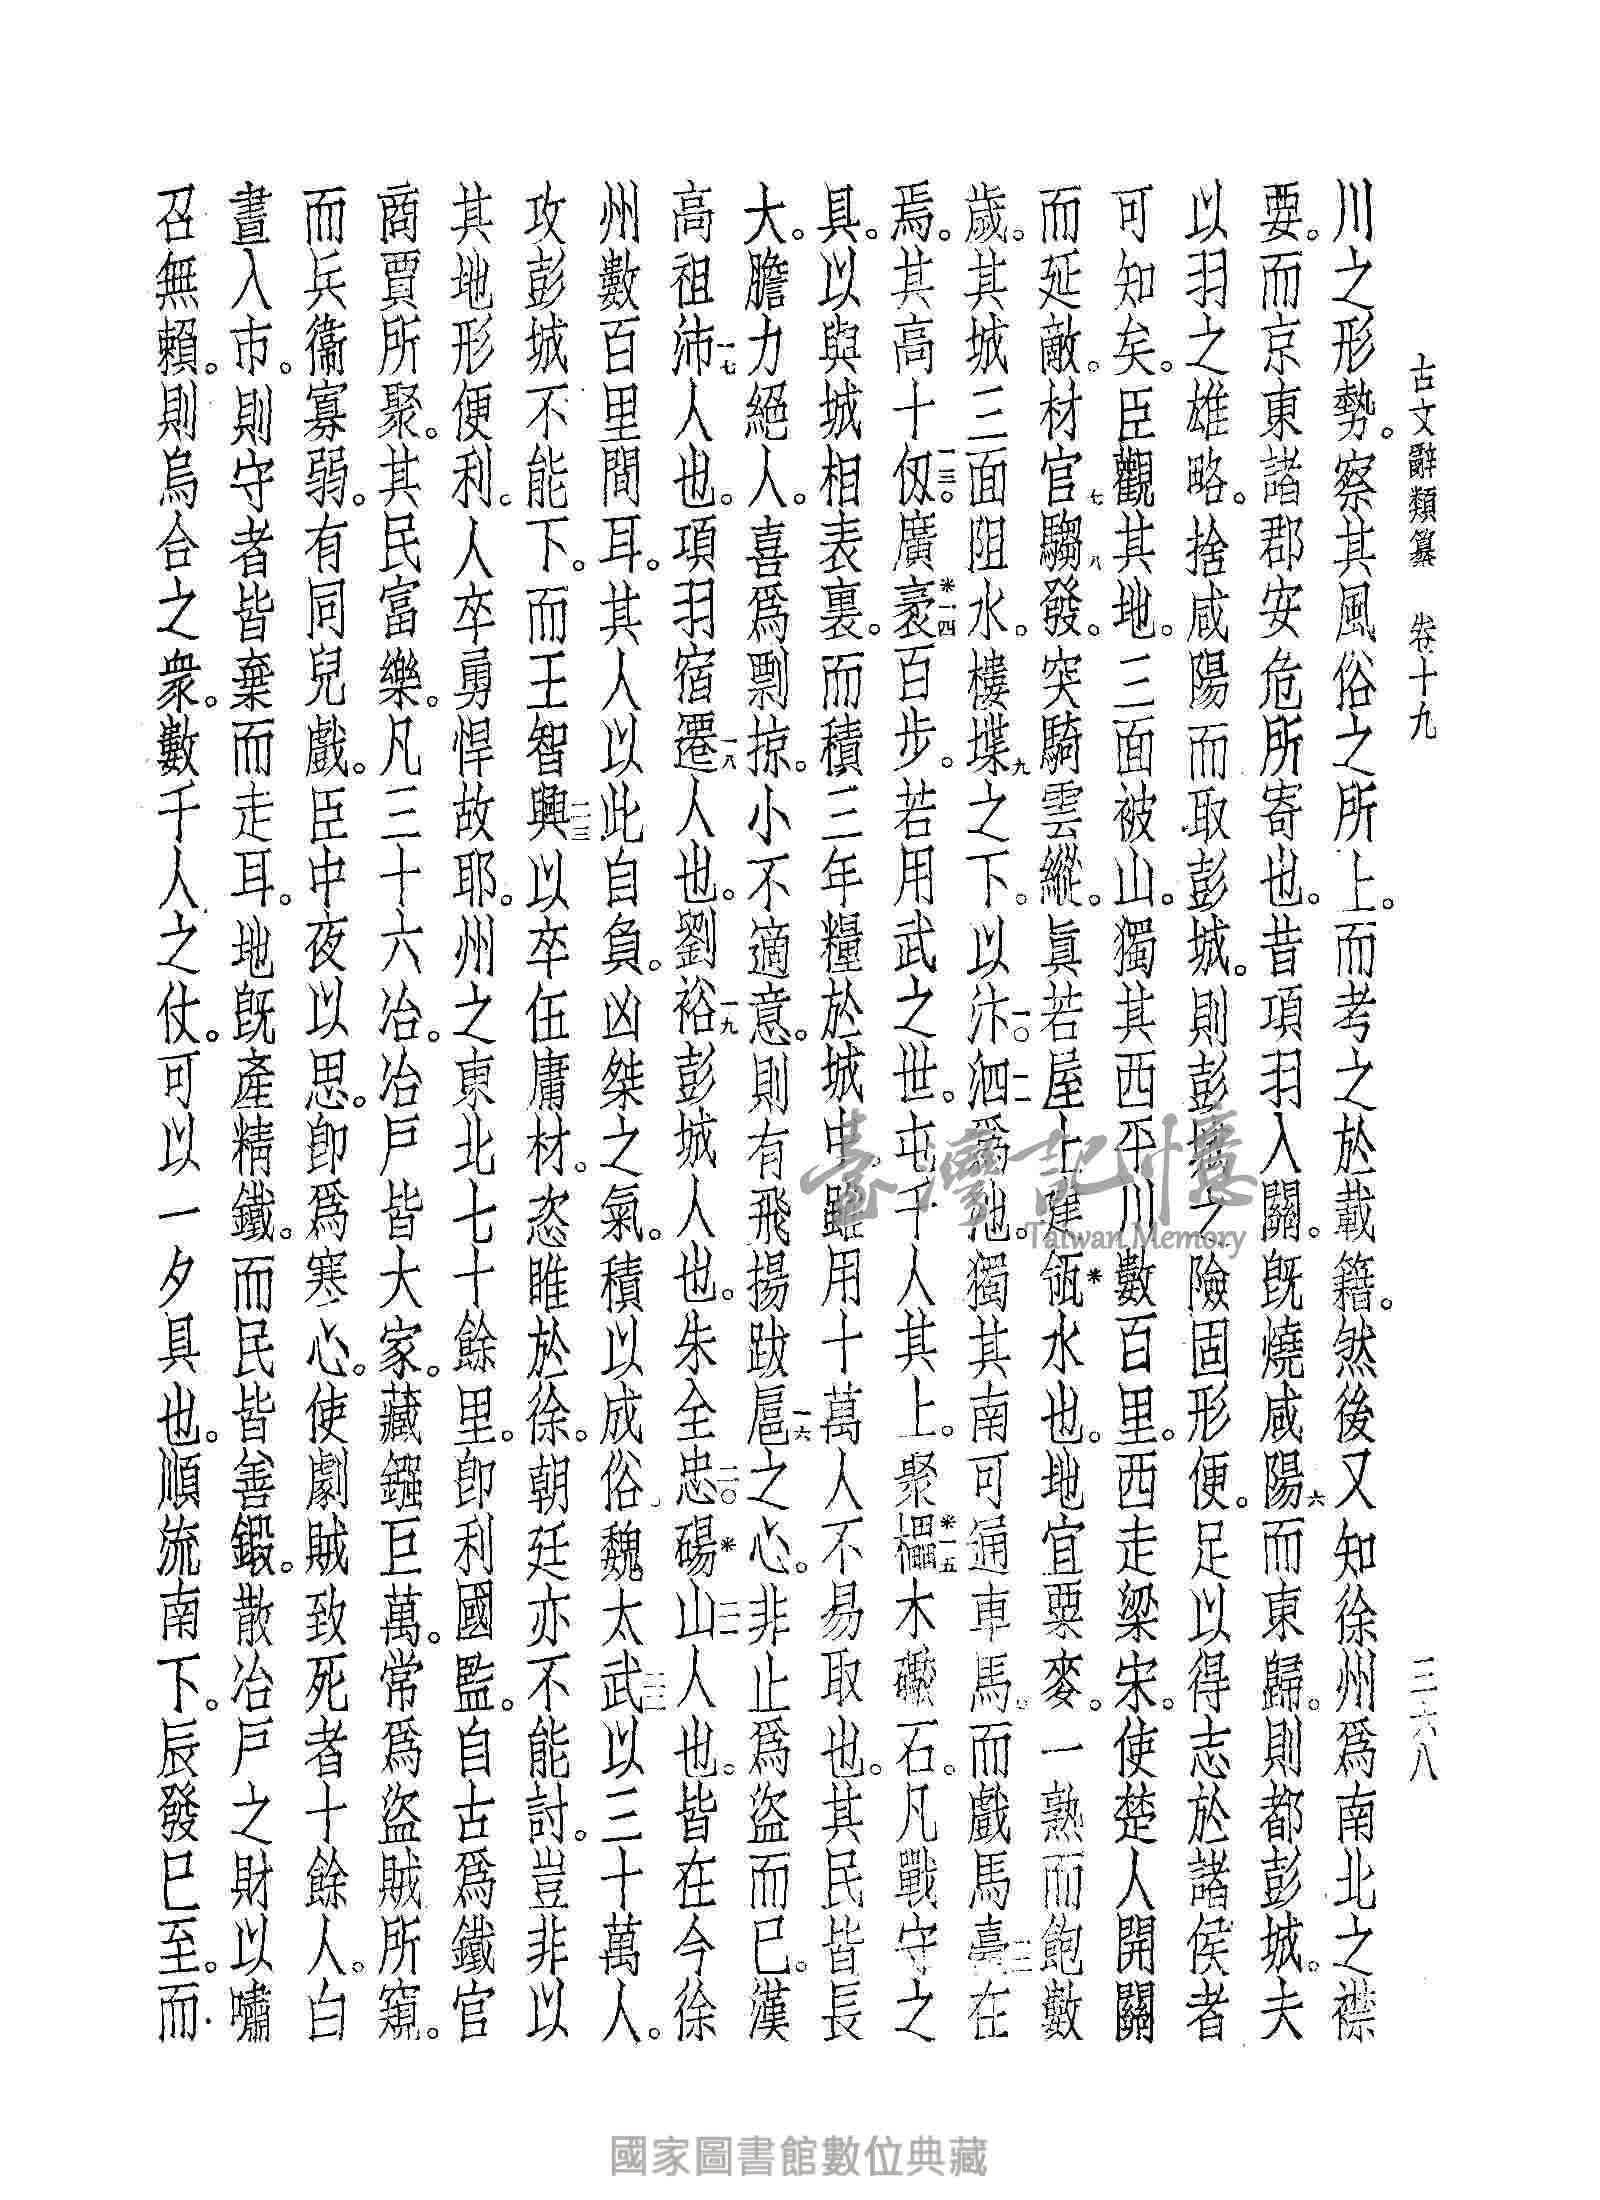 古文辭類纂　卷十九　三六八
川之形勢。察其風俗之所上。而考之於載籍。然後又知徐州爲南北之襟
要。而京東諸郡安危所寄也。昔項羽入關。既燒咸陽六而東歸。則都彭城。夫
以羽之雄略。捨咸陽而取彭城。則彭城之險固形便。足以得志於諸侯者
可知矣。臣觀其地。三面被山。獨其西平川數百里。西走梁宋。使楚人開關
而延敵。材官七騶八發。突騎雲縱。眞若屋上建瓴※水也。地宜粟麥。一熟而飽數
歲。其城三面阻水。樓堞九之下。以汴一〇泗一一爲池。獨其南可通車馬。而戲馬臺一二在
焉。其高十仞一三。廣袤※一四百步。若用武之世。屯千人其上。聚櫑※一五木礮石。凡戰守之
具。以與城相表裏。而積三年糧於城中。雖用十萬人不易取也。其民皆長
大。膽力絕人。喜爲剽掠。小不適意。則有飛揚跋扈一六之心。非止爲盜而已。漢
高祖沛一七人也。項羽宿遷一八人也。劉裕一九彭城人也。朱全忠二〇碭※山二一人也。皆在今徐
州數百里間耳。其人以此自負。凶桀之氣。積以成俗。魏太武二二以三十萬人。
攻彭城不能下。而王智興二三以卒伍庸材。恣睢於徐。朝廷亦不能討。豈非以
其地形便利。人卒勇悍故耶。州之東北七十餘里。卽利國監。自古爲鐵官
商賈所聚。其民富樂。凡三十六冶。冶戶皆大家。藏鏹巨萬。常爲盜賊所窺。
而兵衞寡弱。有同兒戲。臣中夜以思。卽爲寒心。使劇賊致死者十餘人。白
晝入市。則守者皆棄而走耳。地既產精鐵。而民皆善鍛。散冶戶之財以嘯
召無賴。則烏合之衆。數千人之仗。可以一夕具也。順流南下。辰發巳至。而
臺灣記憶
Taiwan Memory
國家圖書館數位典藏